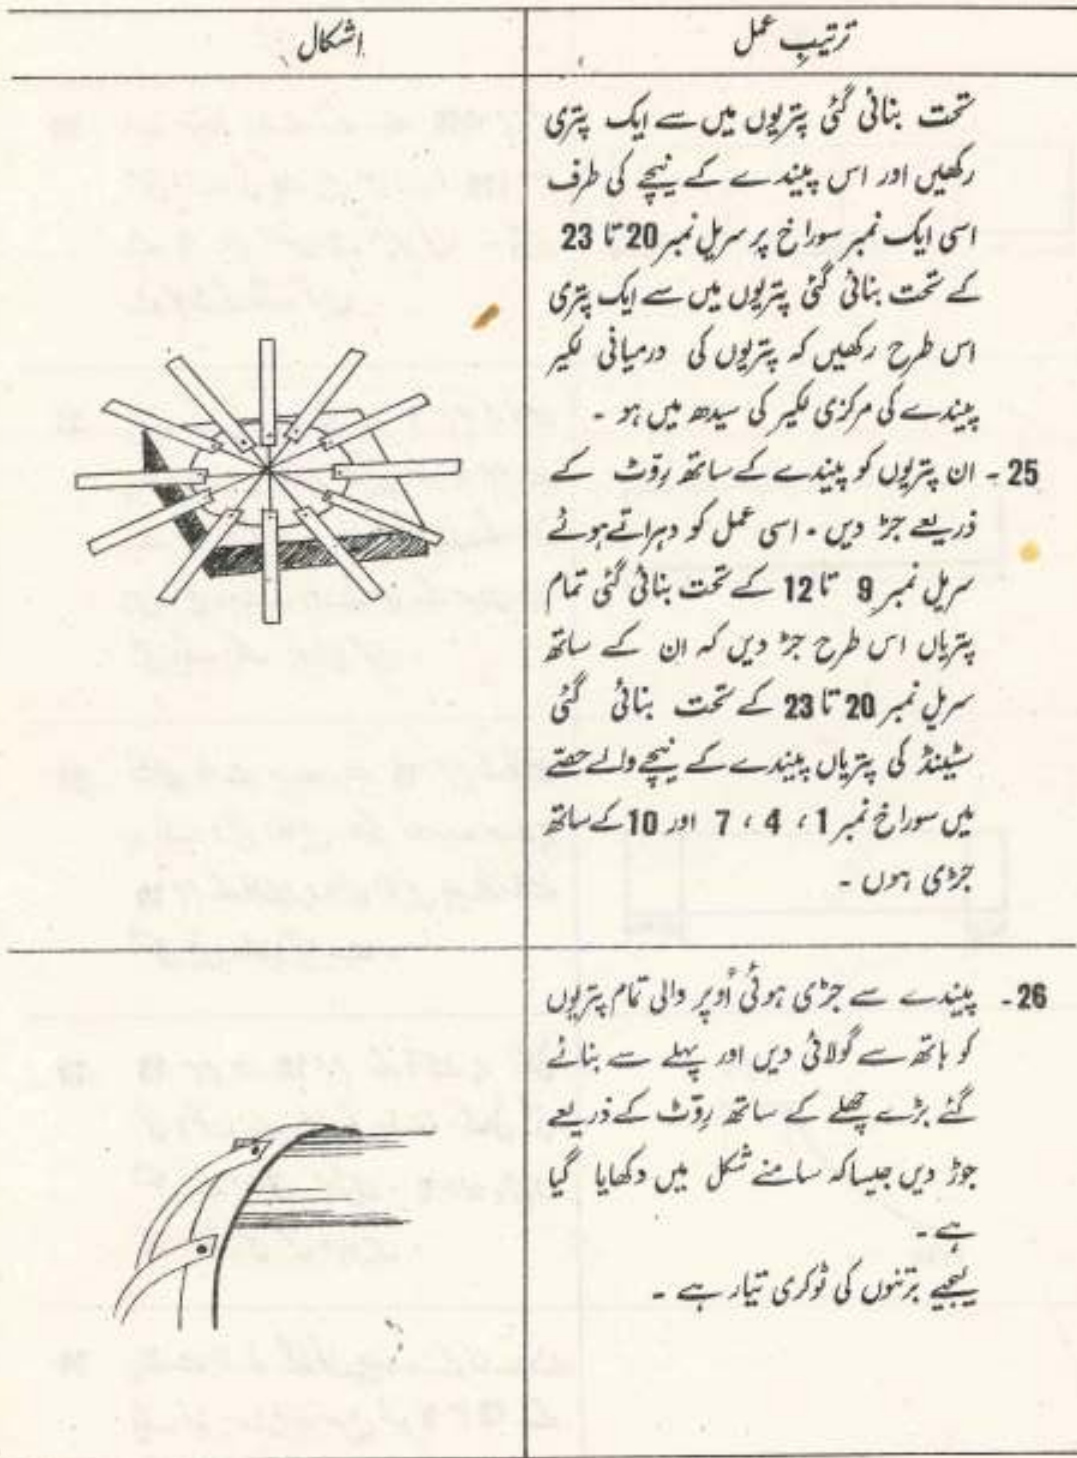 ترتیبِ عمل
اشکال
تحت بنائی گئی پتریوں میں سے ایک پتری
رکھیں اور اس پیندے کے نیچے کی طرف
اسی ایک نمبر سوراخ پر سریل نمبر 20 تا 23
کے تحت بنائی گئی پتریوں میں سے ایک پتری
اس طرح رکھیں کہ پتریوں کی درمیانی لکیر
پیندے کی مرکزی لکیر کی سیدھ میں ہو ۔
25 ۔ ان پتریوں کو پیندے کے ساتھ رِوٹ کے
ذریعے جڑ دیں ۔ اسی عمل کو دہراتے ہوئے
سریل نمبر 9 تا 12 کے تحت بنائی گئی تمام
پتریاں اس طرح جڑ دیں کہ ان کے ساتھ
سریل نمبر 20 تا 23 کے تحت بنائی گئی
سٹینڈ کی پتریاں پیندے کے نیچے والے حصّے
میں سوراخ نمبر 1 ، 4 ، 7 اور 10 کے ساتھ
جڑی ہوں ۔
26۔ پیندے سے جڑی ہوئی اُوپر والی تمام پتریوں
کو ہاتھ سے گولائی دیں اور پہلے سے بنائے
گئے بڑے چھلے کے ساتھ رِوٹ کے ذریعے
جوڑ دیں جیساکہ سامنے شکل میں دکھایا گیا
ہے ۔
لیجیے برتنوں کی ٹوکری تیار ہے ۔